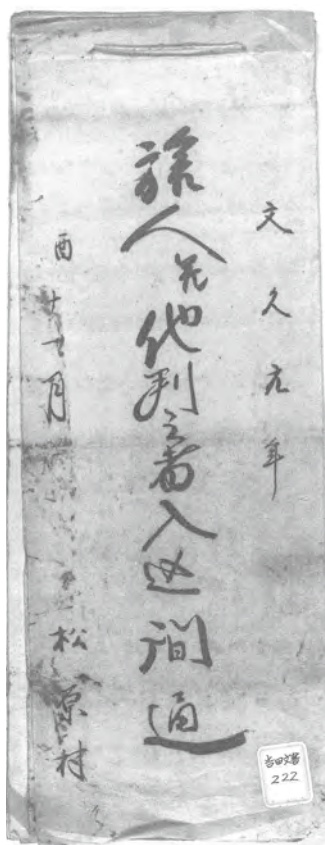 文久元年
旅人幷他判之者入込調通
酉十一月
松原村
吉田文書
222